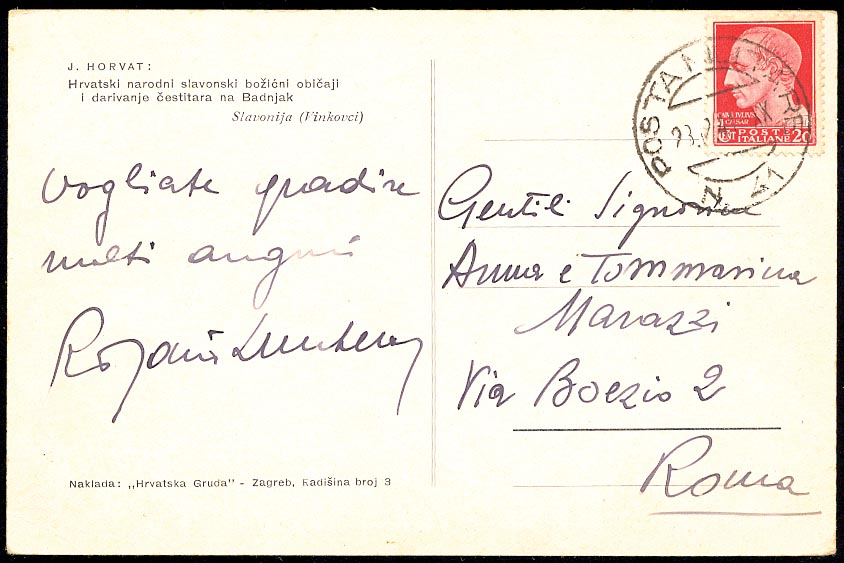 J. HORVAT:
Hrvatski narodni slavonski božićni običaji
i darivanje čestitara na Badnjak
Slavonija (Vinkovci)
Vogliate gradire
molti auguri
Naklada: „Hrvatska Gruda" - Zagreb, Radišina broj 3
POSTE
ITALIANE 20
POSTA MILITARE
N
23.
Gentili Signorine
Anna e Tommasina
Marazzi
Via Boezio 2
Roma